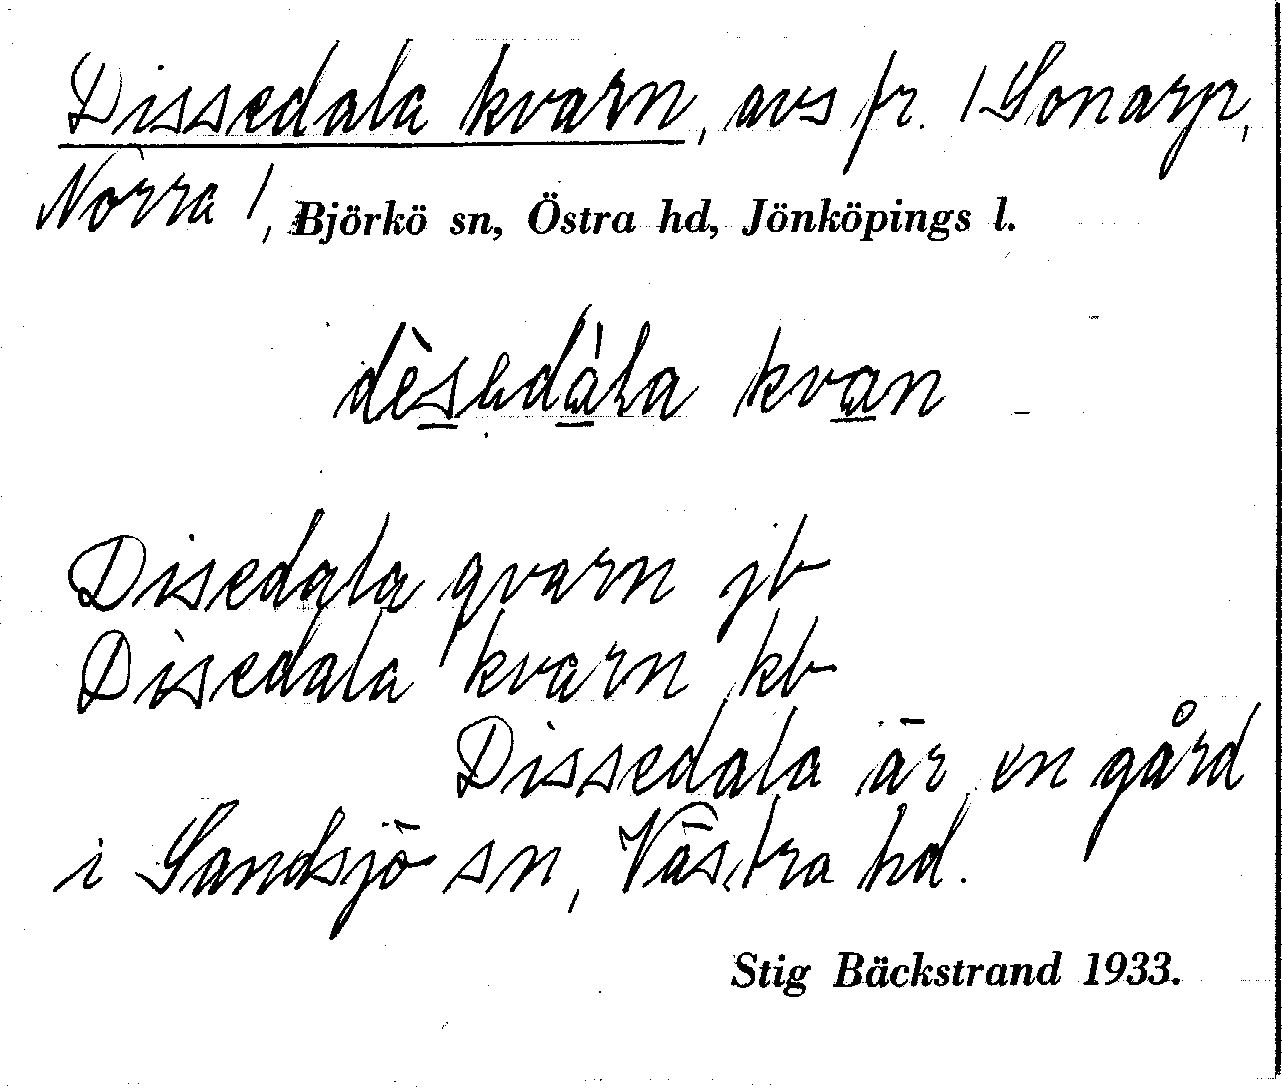 Dissedala kvarn, avs fr. /Sonarp,
Norra/, Björkö sn, Östra hd, Jönköpings l.
dèsedàla kvan
Disedala qvarn jb
Disedala kvarn kb
Dissedala är en gård
i Sandsjö sn, Västra hd.
Stig Bäckstrand 1933.